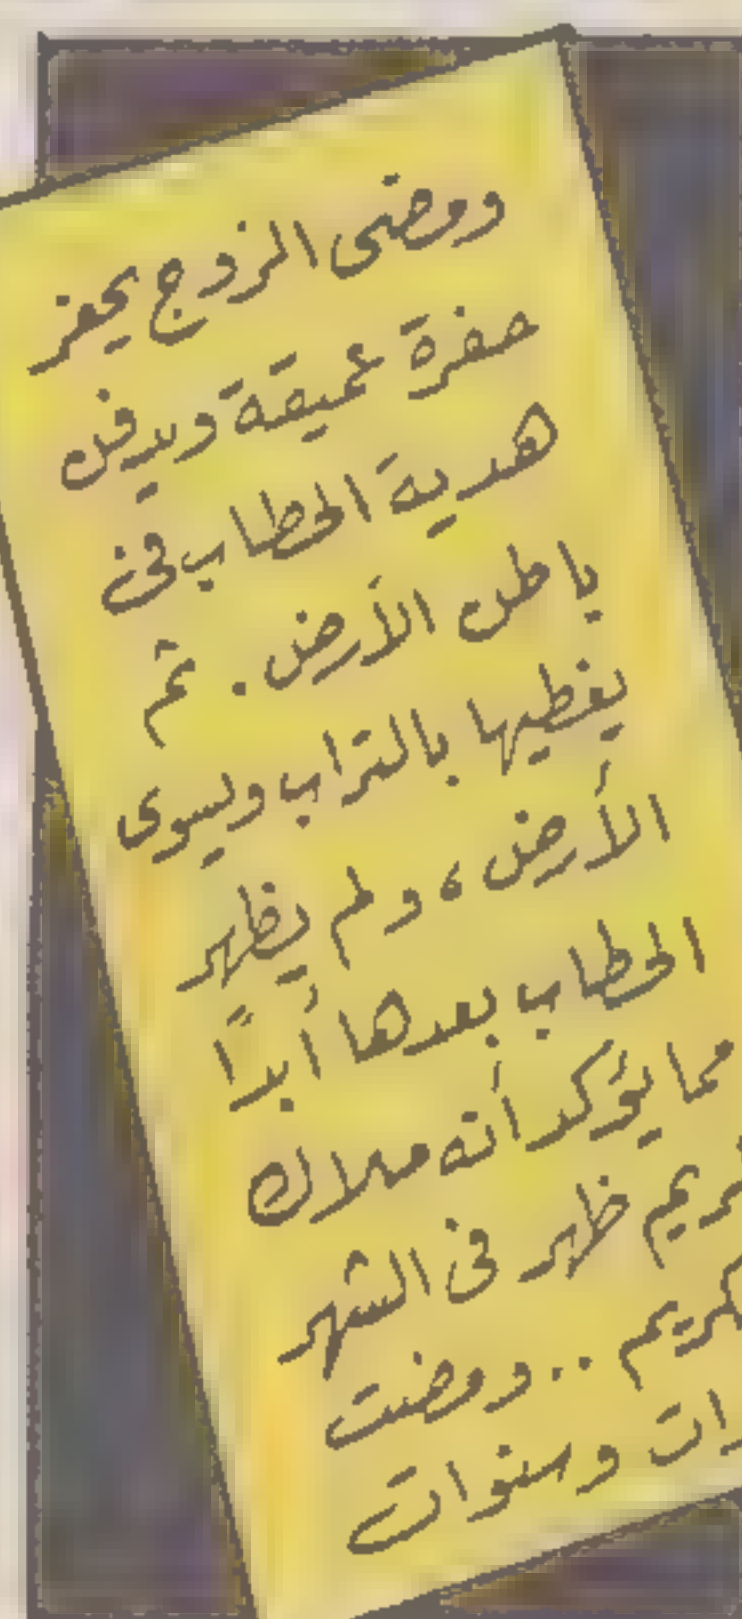 ومضى الزوج يحفر
حفرة عميقة ويدفن
هدية الحطاب فى
باطن الأرض. ثم
يغطيها بالتراب ويسوى
الأرض، ولم يظهر
الحطاب بعدها أبدًا
مما يؤكد أنه ملاك
ظهر فى الشهر
.. ومضت
وسنوات